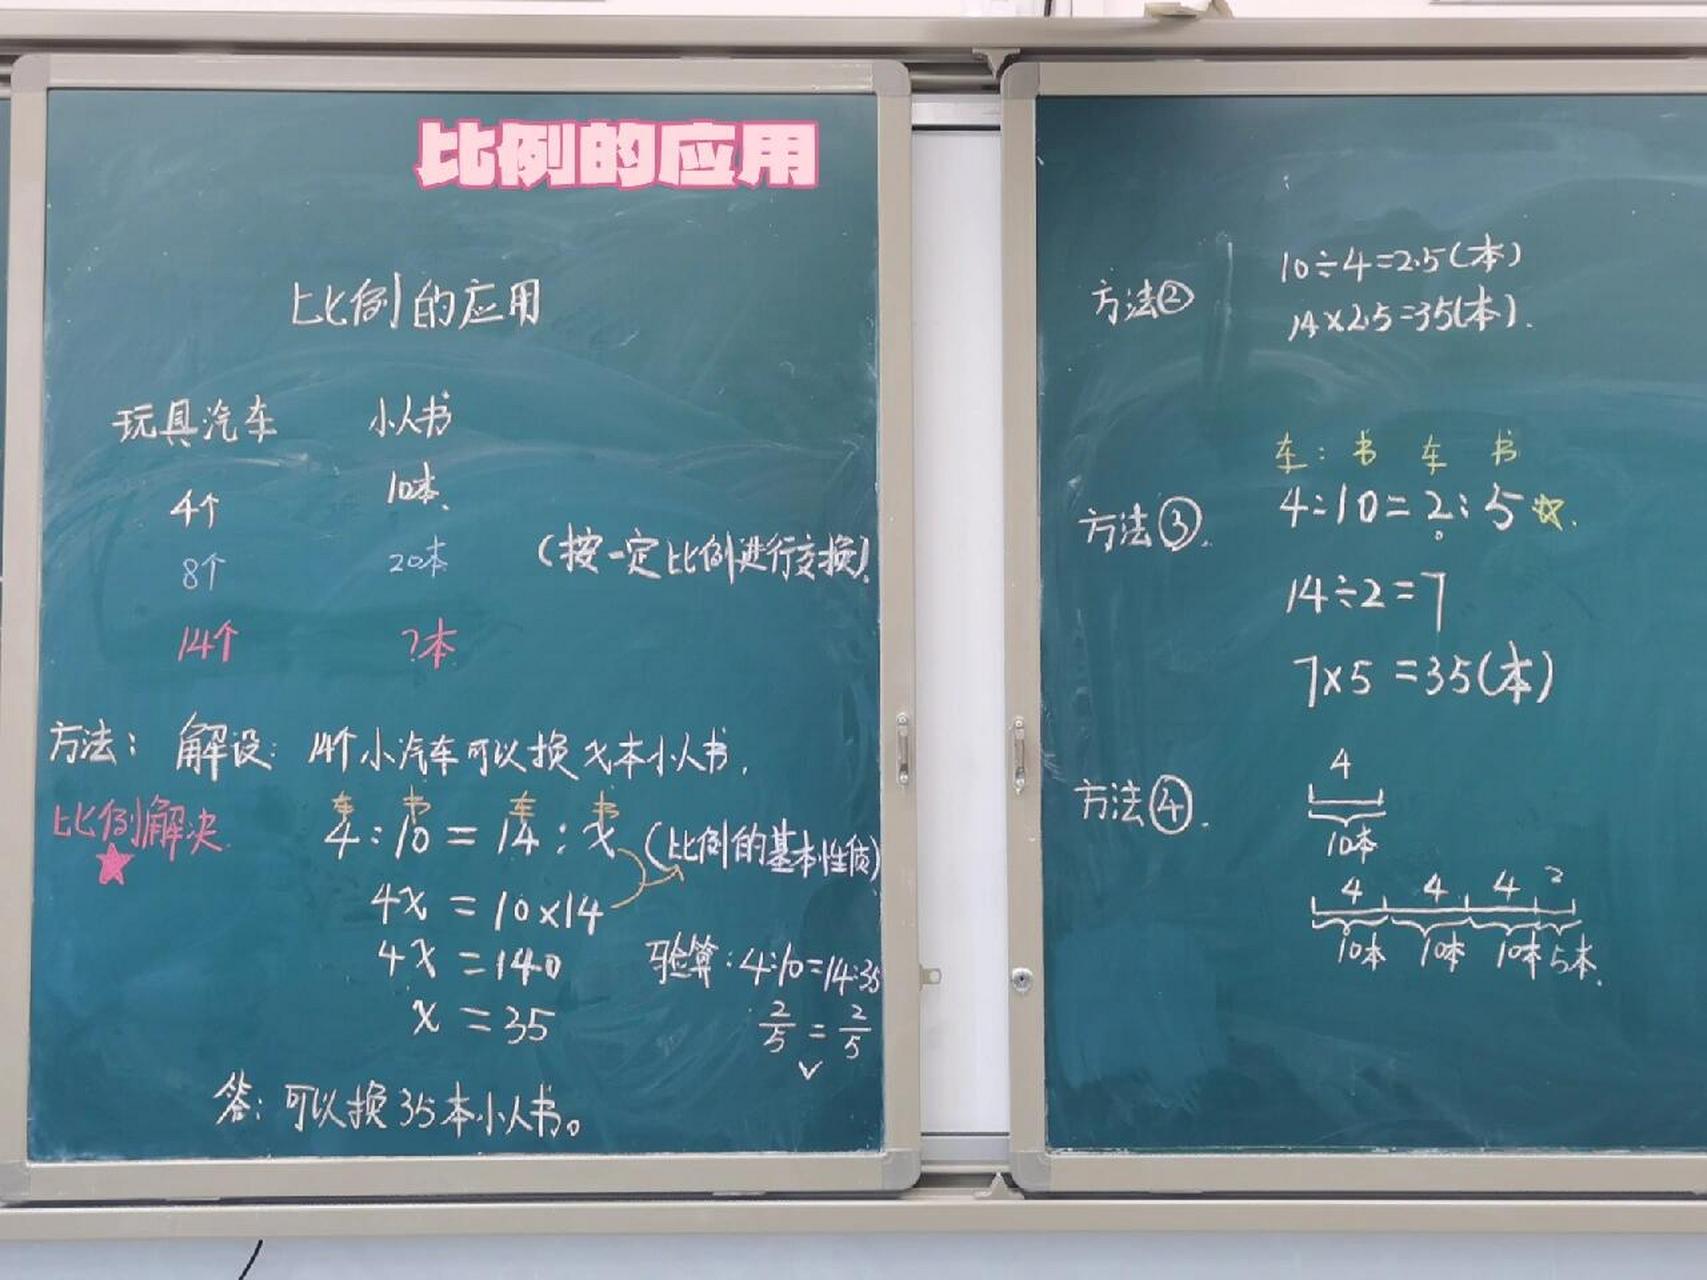 比例的应用
比例的应用
玩具汽车 小人书
4个 10本
8个 20本
(按一定比例进行交换)
14个 ?本
方法: 解设: 14个小汽车可以换x本小人书.
比例解决
车 书 车 书
4:10=14:x (比例的基本性质)
4x=10×14
4x=140
x=35
验算:4:10=14:35
2/5=2/5
✓
答:可以换35本小人书。
方法②
10÷4=2.5(本)
14×2.5=35(本).
方法③.
车:书 车 书
4:10=2:5☆.
14÷2=7
7×5=35(本)
方法④.
4
10本
4 4 4 2
10本 10本 10本 5本.